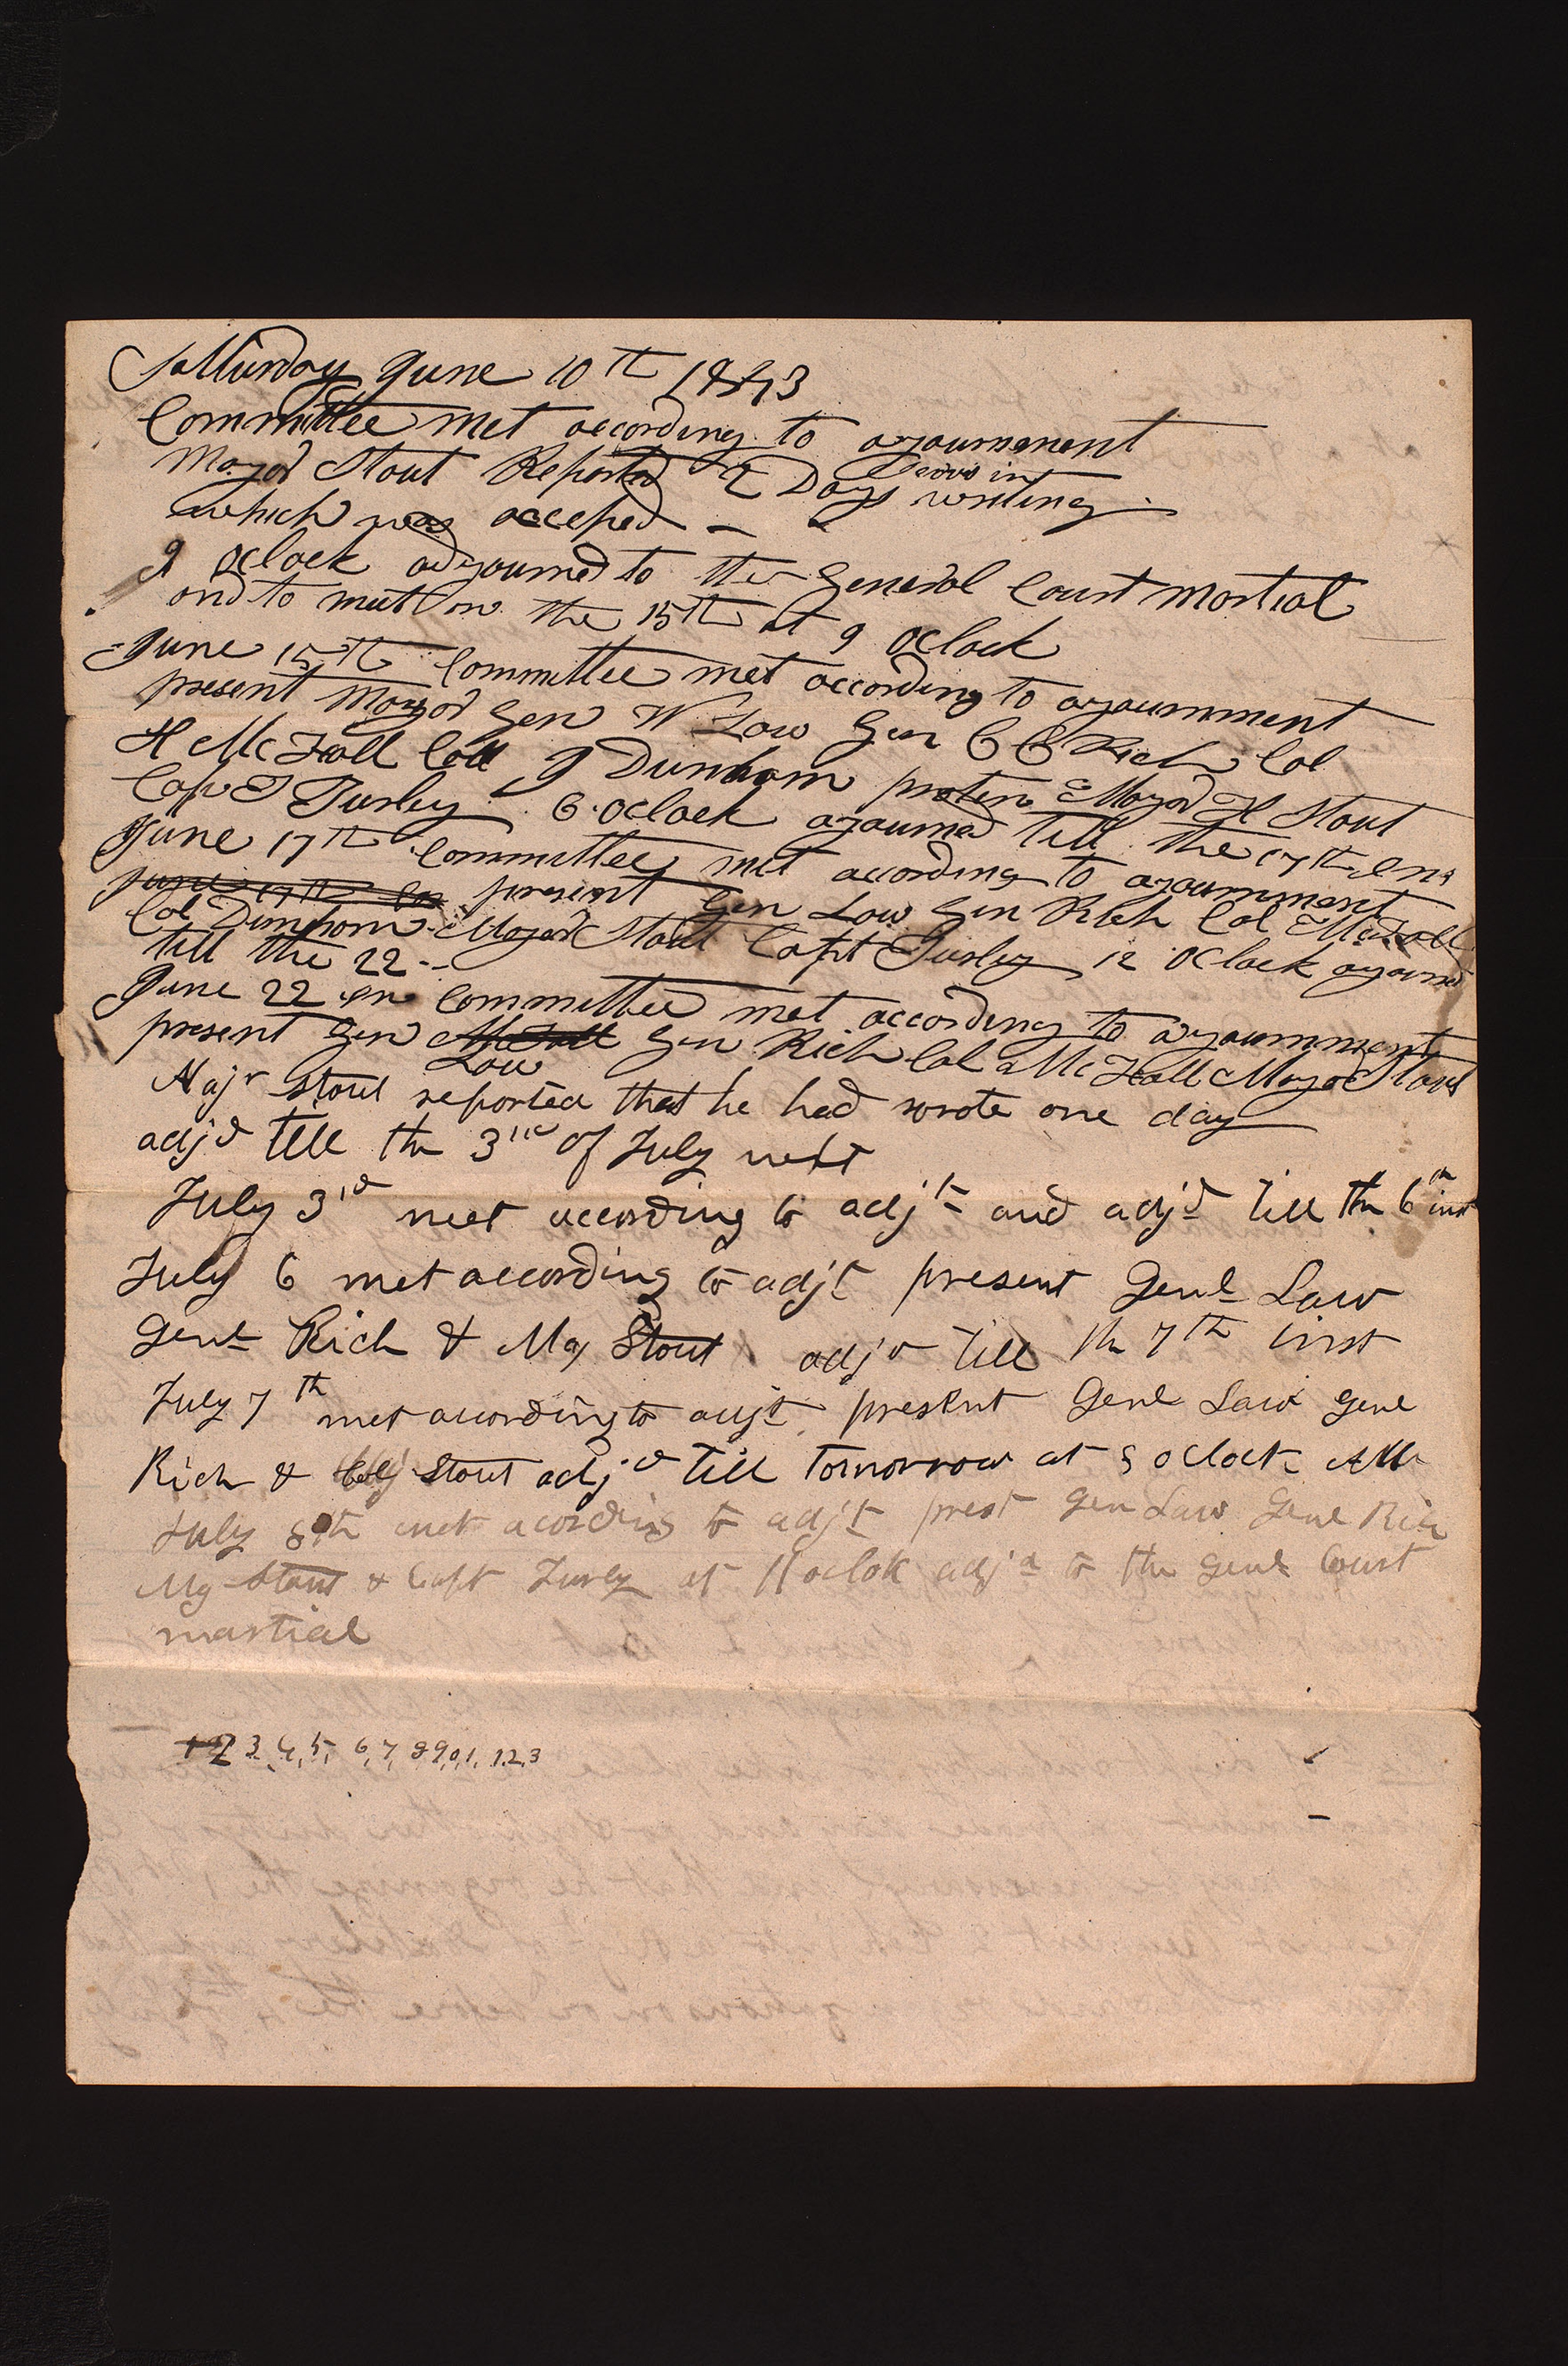 Satturday June 10th 1843
Committee met according to ajournment
Major Stout Reported 2 Days writing
which was acceped
9 oclock adjourned to the General Court Martial
and to meet on the 15th at 9 oclock
June 15th Committee met according to ajournment
present Major Gen W Law Gen C C Rich Col
H McFall Coll J Dunham protem Major H Stout
Cap T Turley 6 oclock ajourned till the 17th ens
June 17th Committee met according to ajournment
june 17th en present Gen Law Gen Rich Col McFall
Col Dunham Major Stout Capt Turley 12 oclock ajourned
till the 22
June 22 en Committee met according to ajournment
present Gen McFall Gen Rich Col McFall Major Stout
Law
Majr Stout reported that he had wrote one day
adjd till the 3rd of July next
July 3rd met according to adjt and adjd till the 6th inst
July 6 met according to adjt present Genl Law
Genl Rich & Maj Stout adjd till th 7th inst
July 7th met acording to adjt present Genl Law Genl
Rich & Stout adjd till tomorrow at 8 oclock AM
July 8th met acording to adjt prest Gen Law Genl Rich
Mg Stout & Capt Turly at 11 oclok adjd to the Genl Court
martial
1 2 3, 4, 5, 6, 7, 8 9, 0, 1, 1.2.3